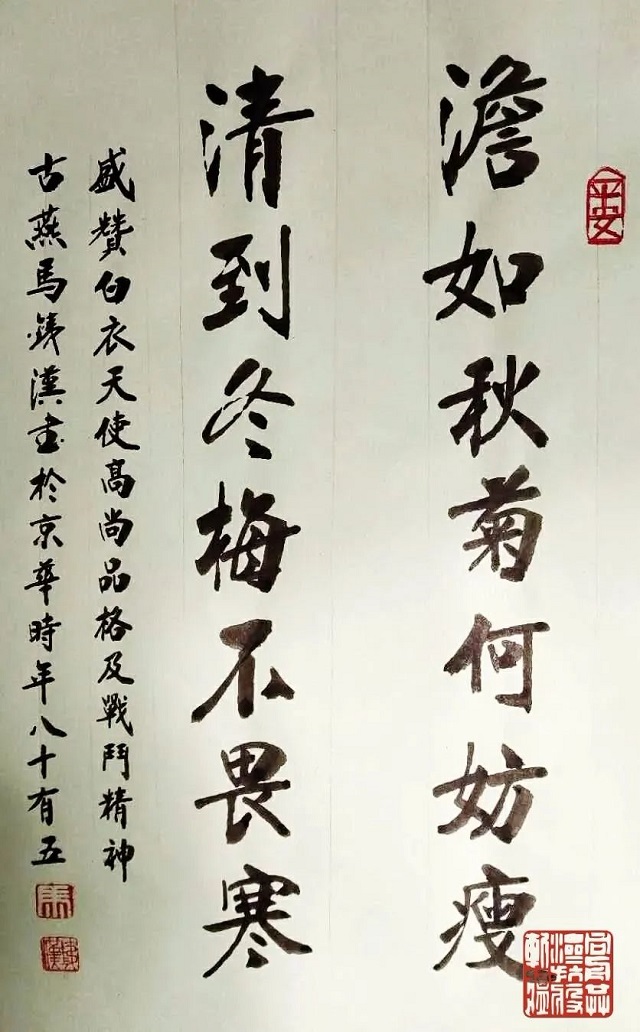 澹如秋菊何妨瘦
清到冬梅不畏寒
盛贊白衣天使高尚品格及戰鬥精神
古燕馬鐵漢書於京華時年八十有五
平安
馬